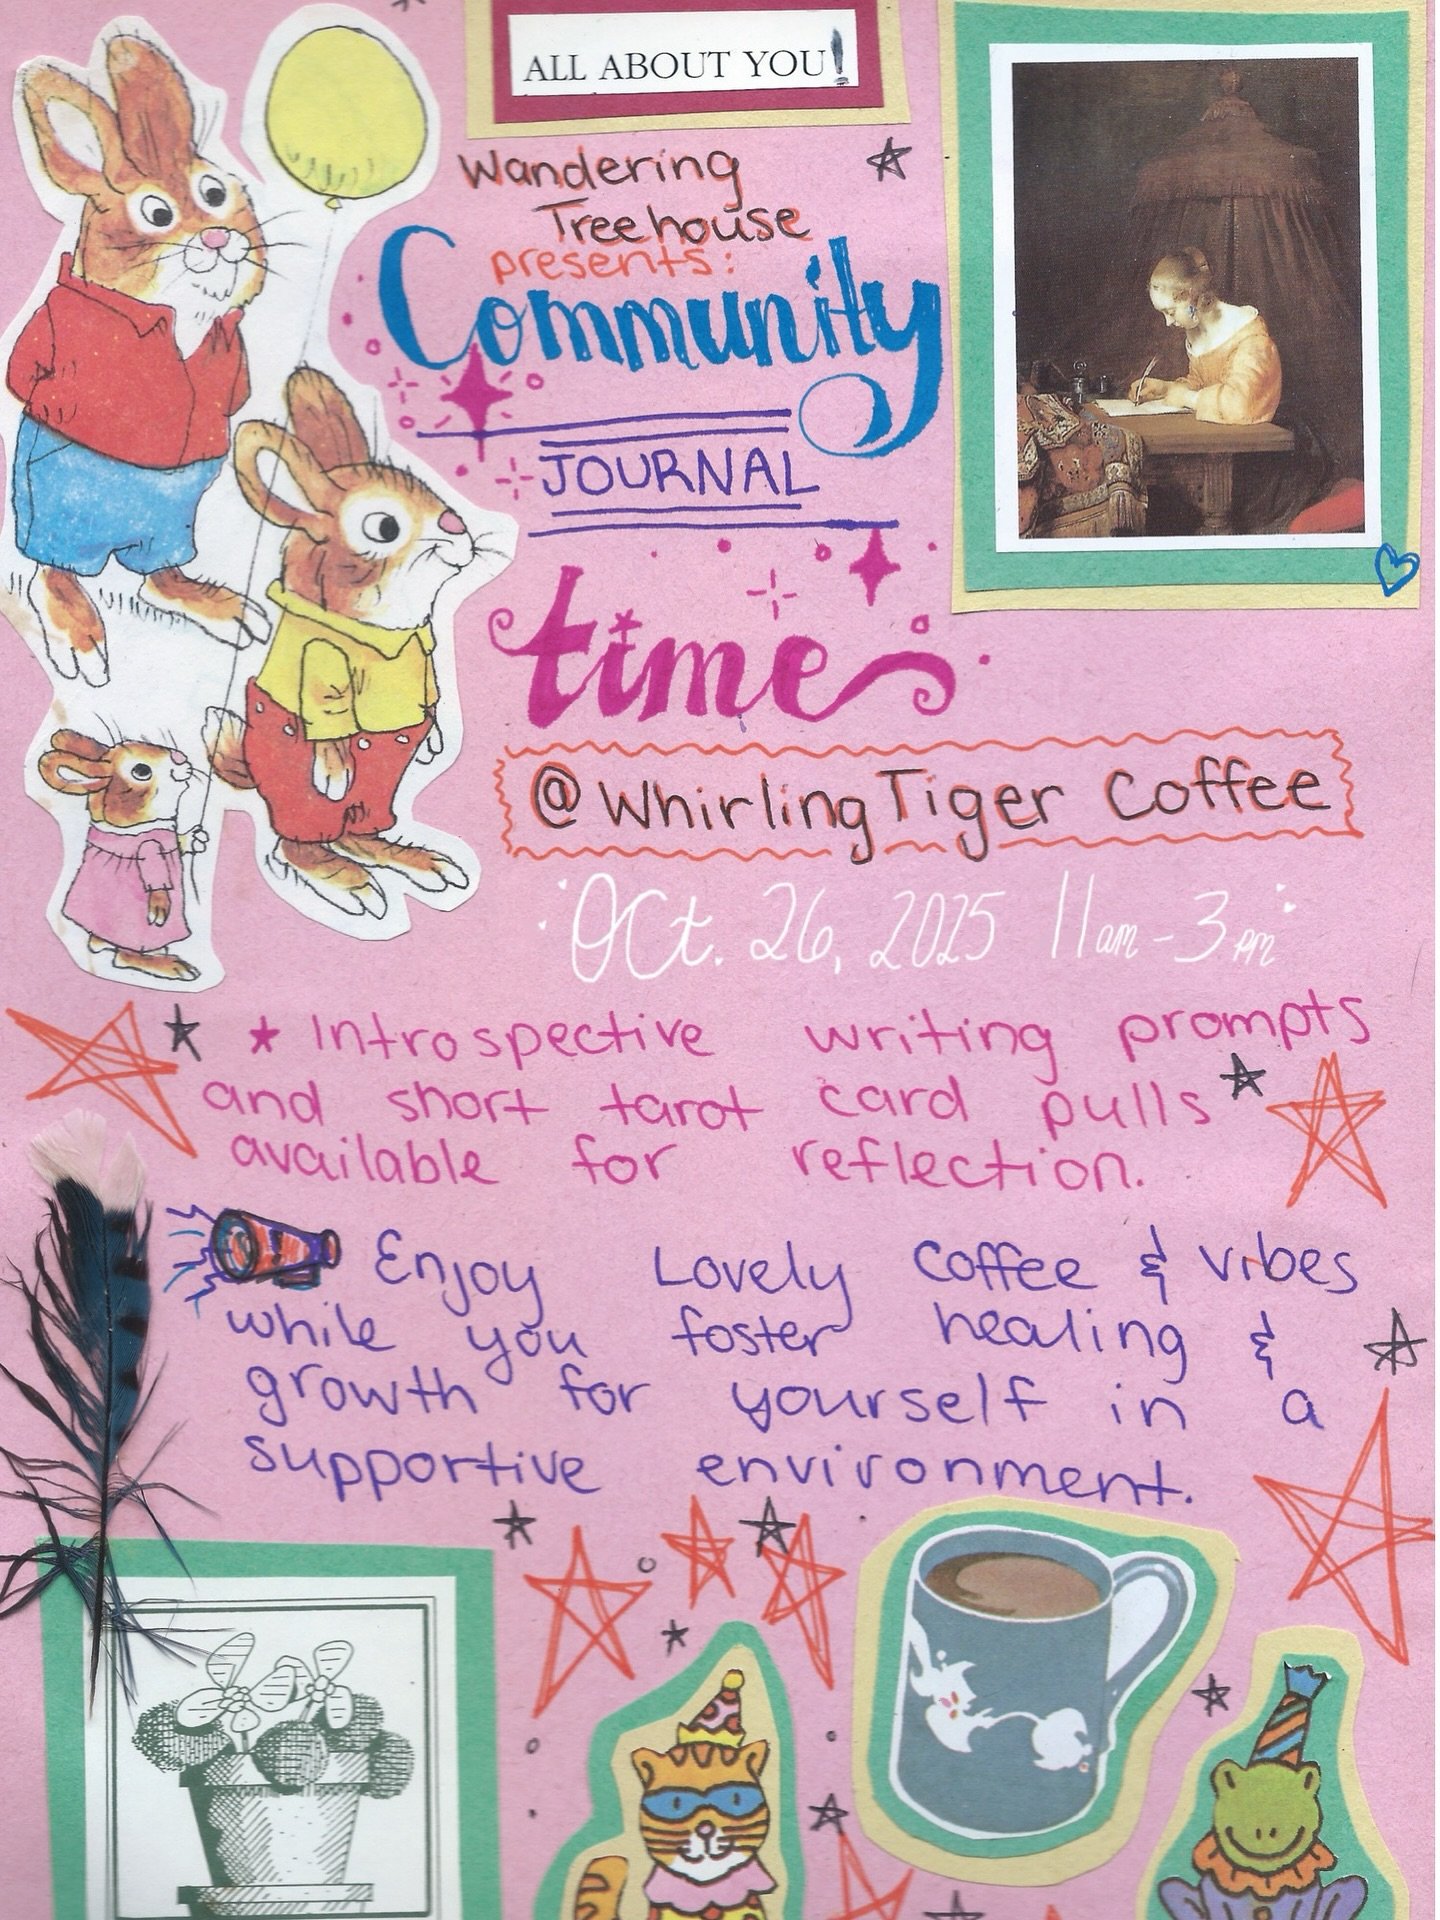 ALL ABOUT YOU!
Wandering
Treehouse
presents:
Community
JOURNAL
time
@ Whirling Tiger Coffee
Oct. 26, 2025 11am - 3pm
Introspective writing prompts
and short tarot card pulls
available for reflection.
Enjoy Lovely Coffee & vibes
while you foster healing &
growth for yourself in a
supportive environment.